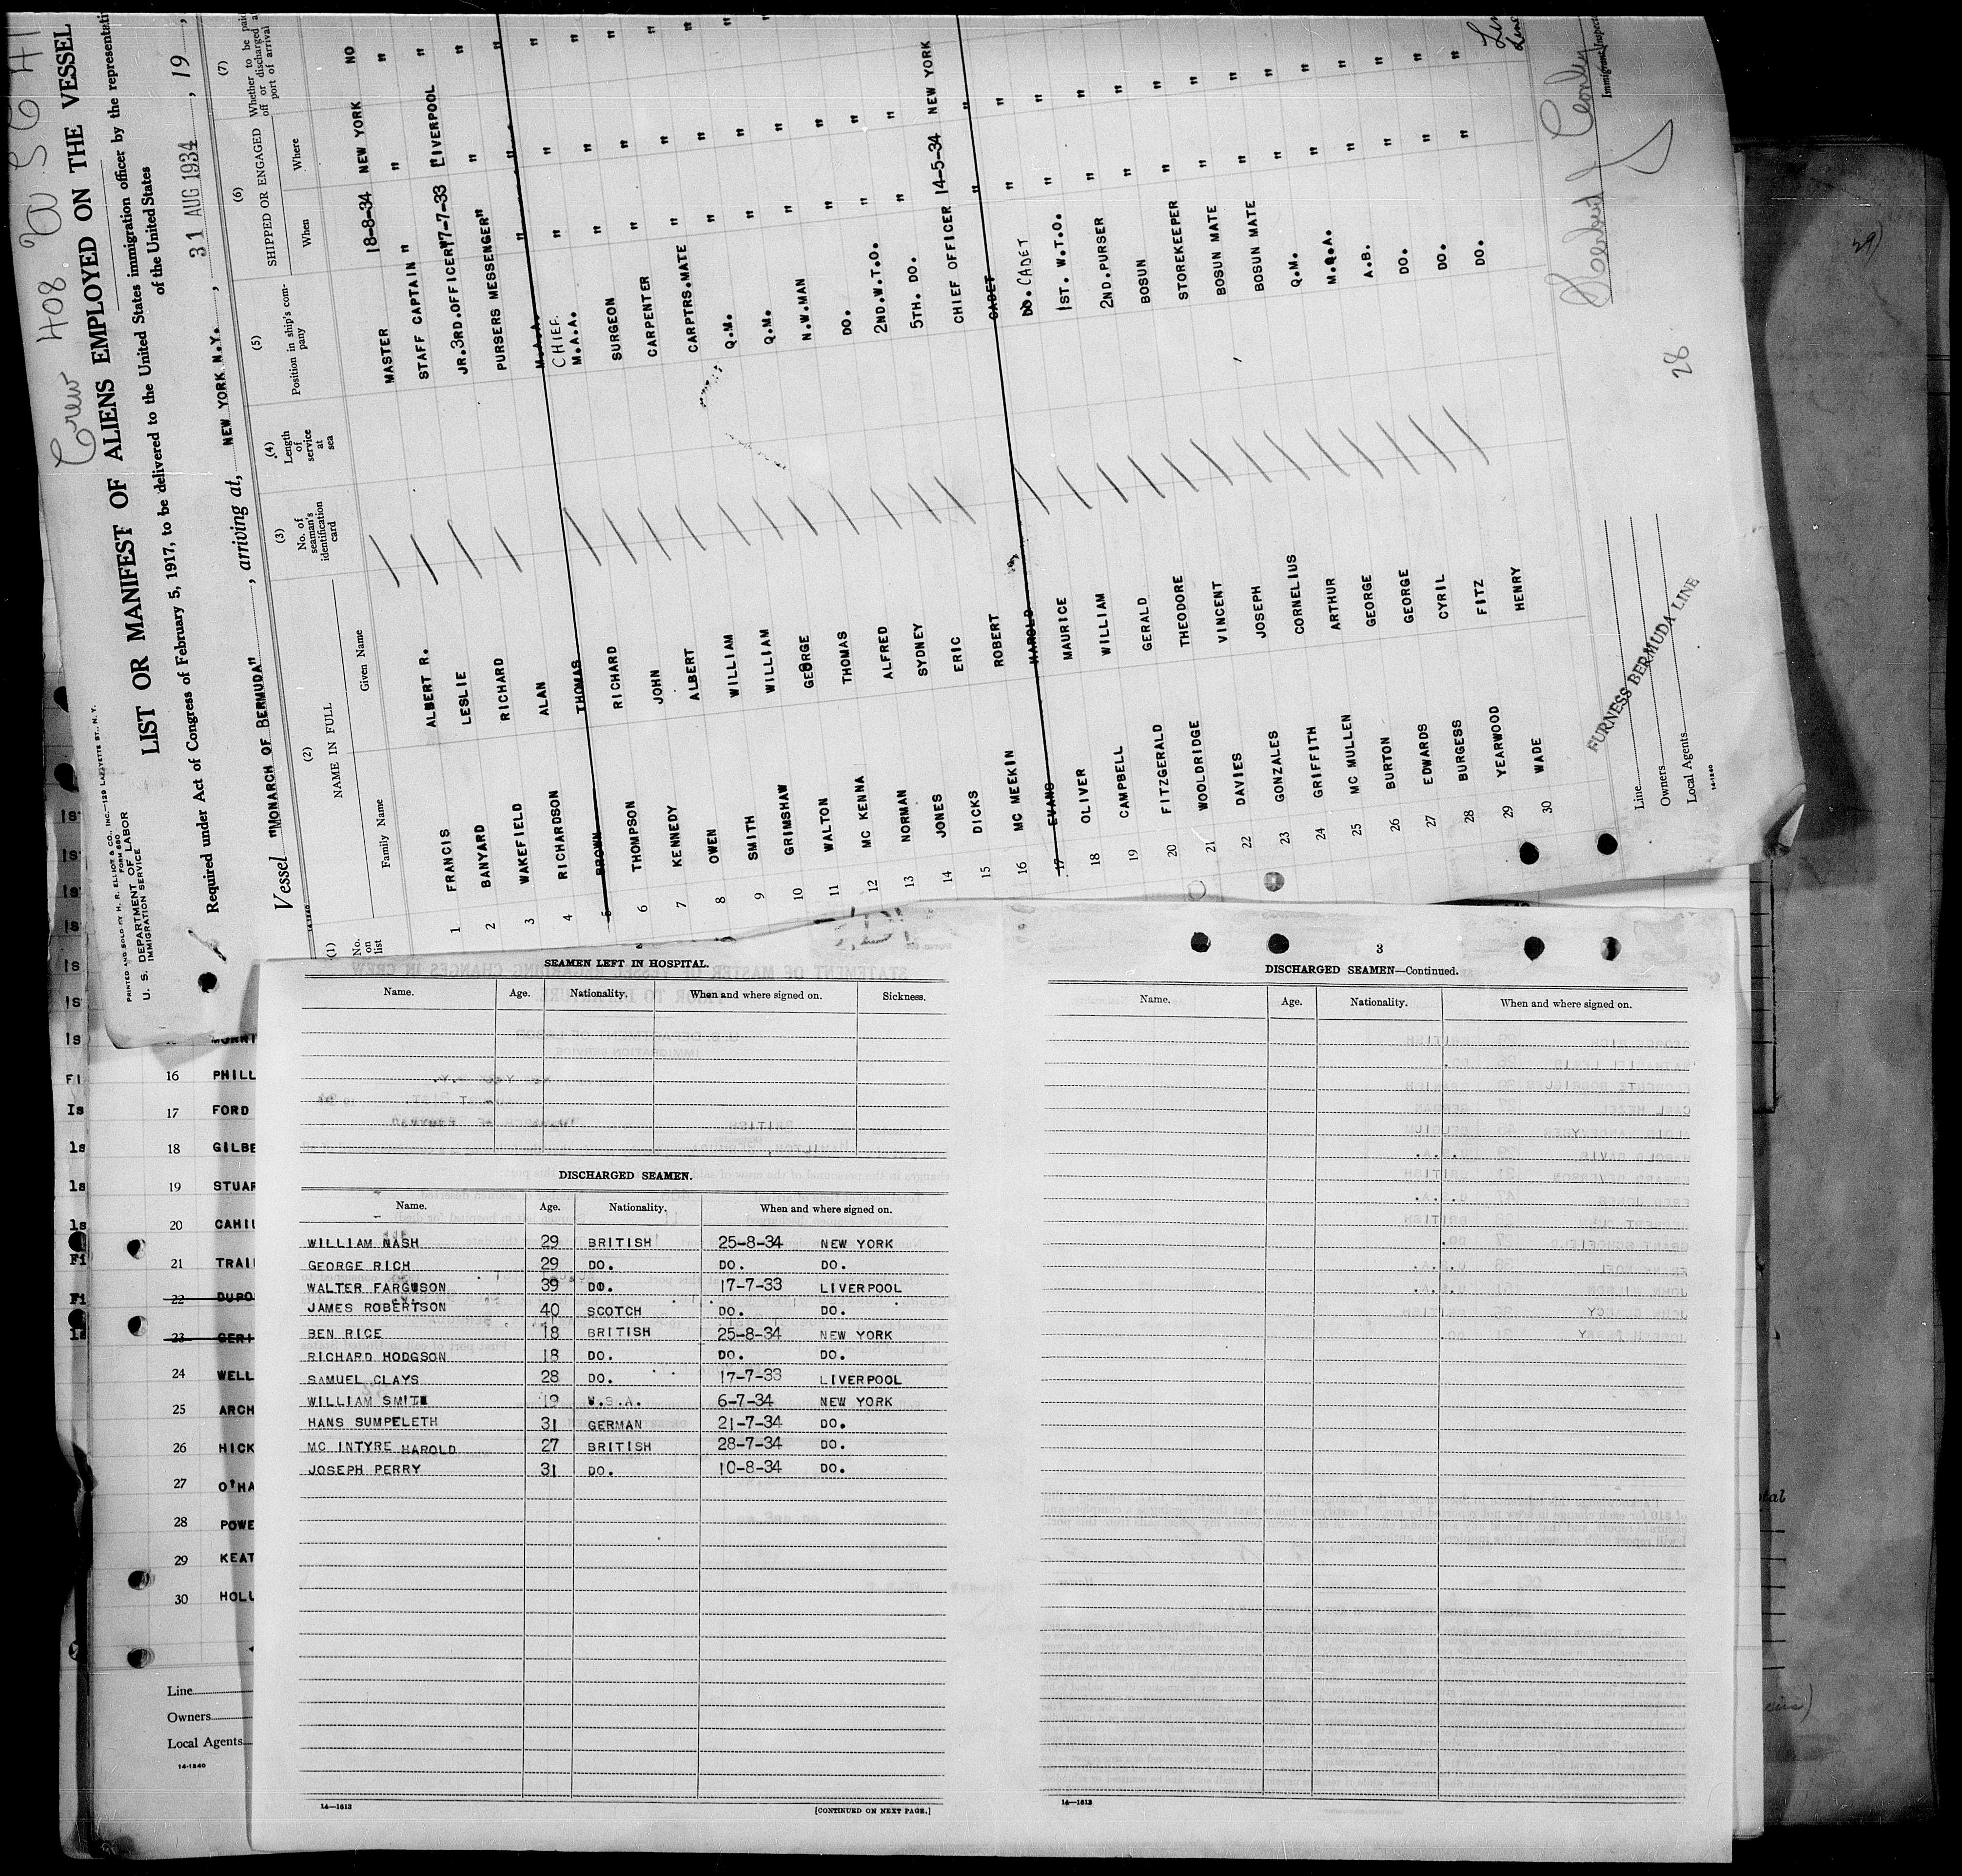 Crew 408
PRINTED AND SOLD BY H. R. ELLIOT & CO., INC.—129 LAFAYETTE ST., N. Y.
FORM 680
U. S. DEPARTMENT OF LABOR
IMMIGRATION SERVICE
LIST OR MANIFEST OF ALIENS EMPLOYED ON THE VESSEL
Required under Act of Congress of February 5, 1917, to be delivered to the United States immigration officer by the representati
of the United States
Vessel "MONARCH OF BERMUDA", arriving at, NEW YORK N.Y., 31 AUG 1934, 19
14-1240
(1) (2) (3) (4) (5) (6) (7)
No. on list NAME IN FULL No. of seaman's identification card Length of service at sea Position in ship's company SHIPPED OR ENGAGED Whether to be paid off or discharged at port of arrival
Family Name Given Name When Where
1 FRANCIS ALBERT R. MASTER 18-8-34 NEW YORK NO
2 BANYARD LESLIE STAFF CAPTAIN " " "
3 WAKEFIELD RICHARD JR.3RD.OFFICER 17-7-33 LIVERPOOL "
4 RICHARDSON ALAN PURSERS MESSENGER " " "
5 BROWN THOMAS M.A.A. " " "
6 THOMPSON RICHARD CHIEF. M.A.A. " " "
7 KENNEDY JOHN SURGEON " " "
8 OWEN ALBERT CARPENTER " " "
9 SMITH WILLIAM CARPTRS.MATE " " "
10 GRIMSHAW WILLIAM Q.M. " " "
11 WALTON GEORGE Q.M. " "
12 MC KENNA THOMAS N.W.MAN " "
13 NORMAN ALFRED DO. " "
14 JONES SYDNEY 2ND.W.T.O. " "
15 DICKS ERIC 5TH. DO. " "
16 MC MEEKIN ROBERT CHIEF OFFICER 14-5-34 NEW YORK
17 EVANS HAROLD CADET " "
18 OLIVER MAURICE DO. CADET " "
19 CAMPBELL WILLIAM 1ST. W.T.O. " "
20 FITZGERALD GERALD 2ND.PURSER " "
21 WOOLDRIDGE THEODORE BOSUN " "
22 DAVIES VINCENT STOREKEEPER " "
23 GONZALES JOSEPH BOSUN MATE " "
24 GRIFFITH CORNELIUS BOSUN MATE " "
25 MC MULLEN ARTHUR Q.M. " "
26 BURTON GEORGE M.A.A. " "
27 EDWARDS GEORGE A.B. " "
28 BURGESS CYRIL DO. " "
29 YEARWOOD FITZ DO. " "
30 WADE HENRY DO. " "
28
Line
Owners
Local Agents
FURNESS BERMUDA LINE
14-1240
Immigrant Inspect
16 PHILL
17 FORD
18 GILBE
19 STUAR
20 CAHIL
21 TRAI
22 DUPO
23 GERI
24 WELL
25 ARCH
26 HICK
27 O'HA
28 POWE
29 KEAT
30 HOLL
Line
Owners
Local Agents
14-1240
SEAMEN LEFT IN HOSPITAL.
Name. Age. Nationality. When and where signed on. Sickness.
DISCHARGED SEAMEN.
Name. Age. Nationality. When and where signed on.
WILLIAM NASH 29 BRITISH 25-8-34 NEW YORK
GEORGE RICH 29 DO. DO. DO.
WALTER FARGUSON 39 DO. 17-7-33 LIVERPOOL
JAMES ROBERTSON 40 SCOTCH DO. DO.
BEN RICE 18 BRITISH 25-8-34 NEW YORK
RICHARD HODGSON 18 DO. DO. DO.
SAMUEL CLAYS 28 DO. 17-7-33 LIVERPOOL
WILLIAM SMITH 19 U.S.A. 6-7-34 NEW YORK
HANS SUMPELETH 31 GERMAN 21-7-34 DO.
MC INTYRE HAROLD 27 BRITISH 28-7-34 DO.
JOSEPH PERRY 31 DO. 10-8-34 DO.
14—1613
[CONTINUED ON NEXT PAGE.]
3
DISCHARGED SEAMEN—Continued.
Name. Age. Nationality. When and where signed on.
14—1613